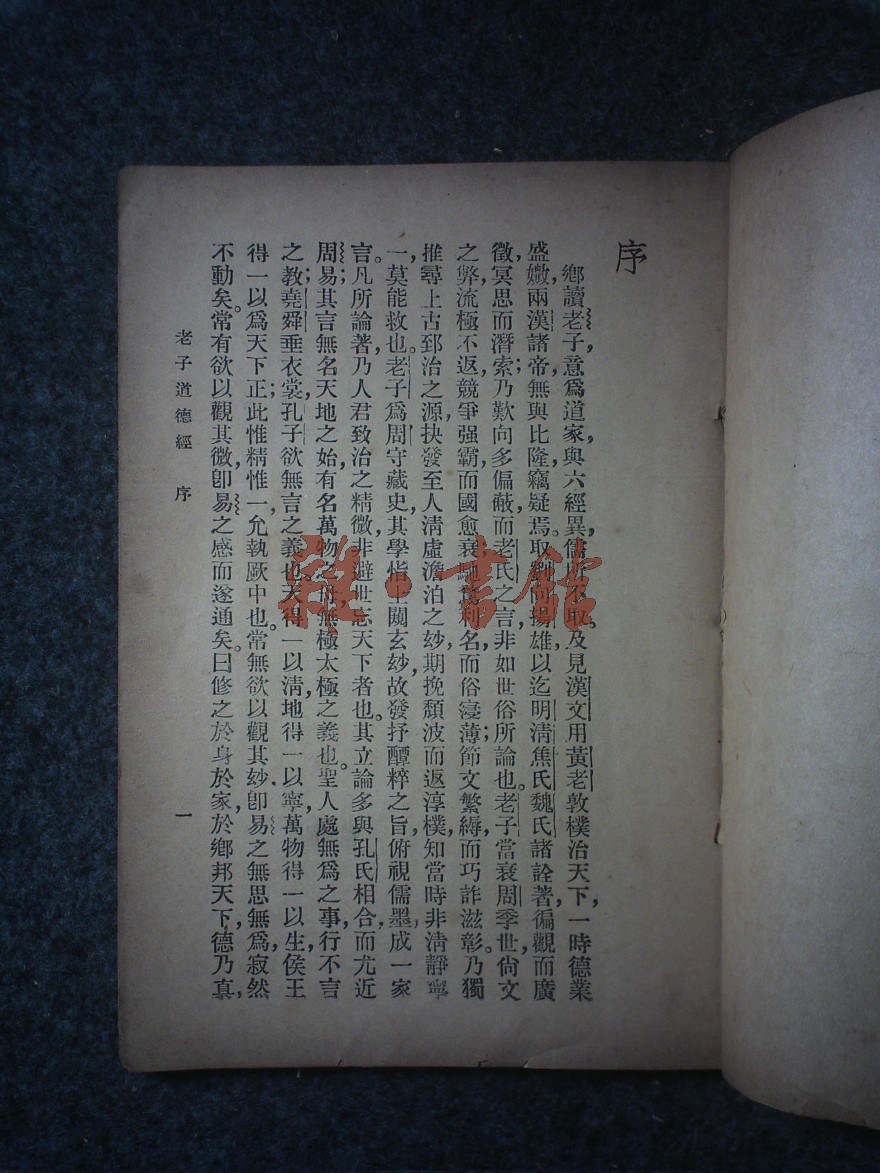 序
鄉讀老子，意爲道家，與六經異，儒所不取。及見漢文用黃老敦樸治天下，一時德業
盛媺，兩漢諸帝無與比隆，竊疑焉。取劉向揚雄以迄明清焦氏魏氏諸詮著，徧觀而廣
徵，冥思而潛索；乃歎向多偏蔽，而老氏之言，非如世俗所論也。老子當衰周季世，尙文
之弊，流極不返，競爭强霸，而國愈衰，馳騖利名，而俗寖薄；節文繁縟，而巧詐滋彰。乃獨
推尋上古郅治之源，抉發至人清虛澹泊之妙，期挽頹波而返淳樸，知當時非清靜寧
一，莫能救也。老子爲周守藏史，其學恉主闓玄妙，故發抒醰粹之旨，俯視儒墨，成一家
言。凡所論著，乃人君致治之精微，非避世忘天下者也。其立論多與孔氏相合，而尤近
周易；其言無名天地之始，有名萬物之母，無極太極之義也。聖人處無爲之事，行不言
之教，堯舜垂衣裳，孔子欲無言之義也。天得一以清，地得一以寧，萬物得一以生，侯王
得一以爲天下正；此惟精惟一，允執厥中也。常無欲以觀其妙，卽易之無思無爲，寂然
不動矣。常有欲以觀其徼，卽易之感而遂通矣。曰修之於身，於家，於鄉邦天下，德乃眞，
老子道德經 序
一
雜·書館